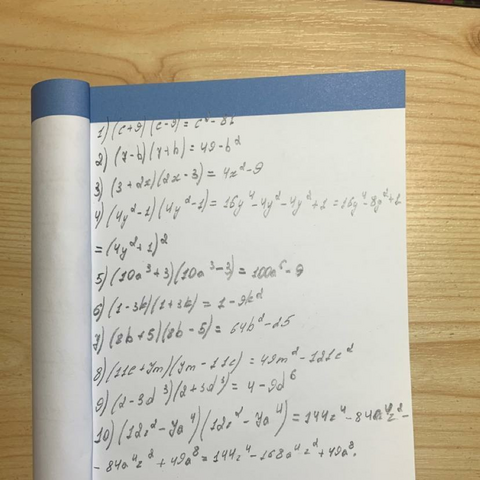 1) (c+9)(c-9) = c² - 81
2) (7-b)(7+b) = 49 - b²
3) (3+2x)(2x-3) = 4x² - 9
4) (4y²-1)(4y²-1) = 16y⁴ - 4y² - 4y² + 1 = 16y⁴ - 8y² + 1
= (4y² + 1)²
5) (10a³+3)(10a³-3) = 100a⁶ - 9
6) (1-3k)(1+3k) = 1 - 9k²
7) (8b+5)(8b-5) = 64b² - 25
8) (11c+7m)(7m-11c) = 49m² - 121c²
9) (2-3d³)(2+3d³) = 4 - 9d⁶
10) (12z²-7a⁴)(12z²-7a⁴) = 144z⁴ - 84a⁴z² -
- 84a⁴z² + 49a⁸ = 144z⁴ - 168a⁴z² + 49a⁸.